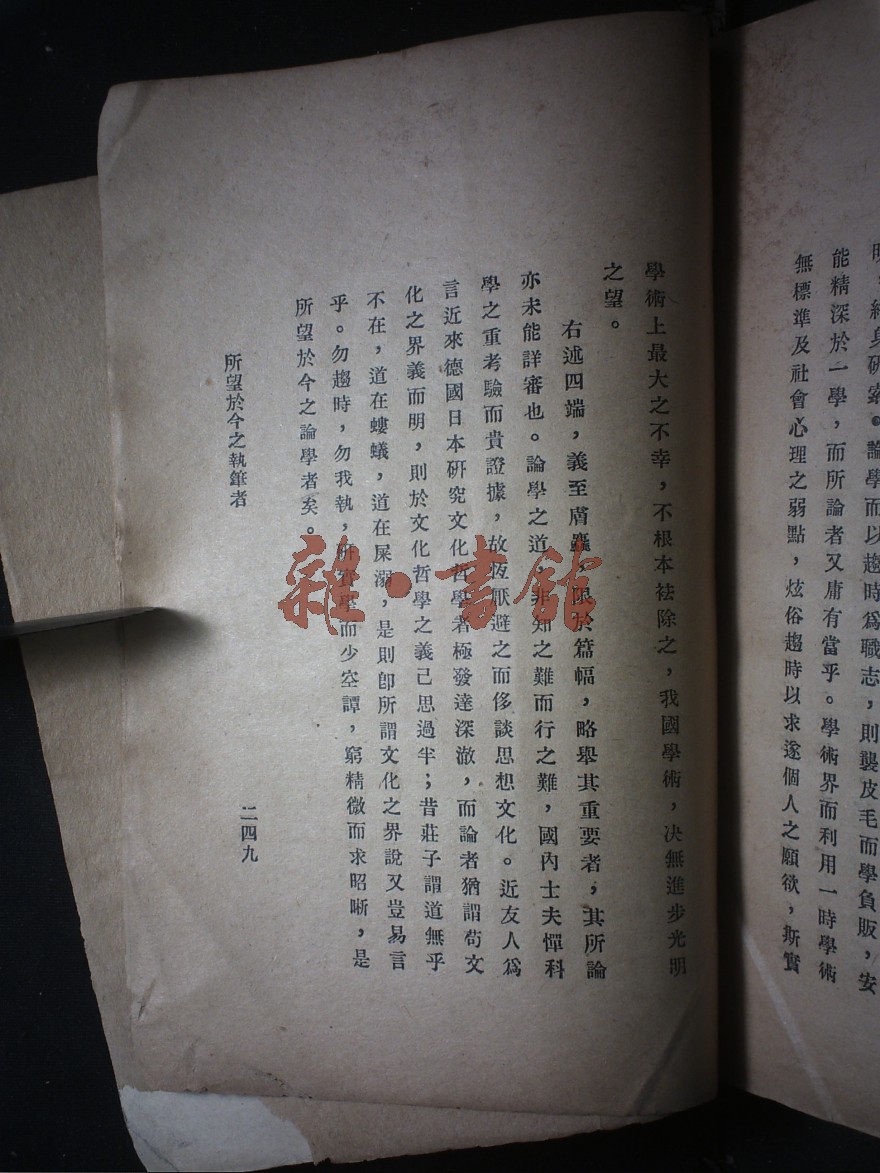 終身研索。論學而以趨時爲職志，則襲皮毛而學負販，安
能精深於一學，而所論者又庸有當乎。學術界而利用一時學術
無標準及社會心理之弱點，炫俗趨時以求遂個人之願欲，斯實
學術上最大之不幸，不根本袪除之，我國學術，决無進步光明
之望。
右述四端，義至膚蠡，限於篇幅，略舉其重要者，其所論
亦未能詳審也。論學之道，非知之難而行之難，國內士夫憚科
學之重考驗而貴證據，故恆厭避之而侈談思想文化。近友人爲
言近來德國日本研究文化哲學者極發達深澈，而論者猶謂苟文
化之界義而明，則於文化哲學之義已思過半；昔莊子謂道無乎
不在，道在螻蟻，道在屎溺，是則卽所謂文化之界說又豈易言
乎。勿趨時，勿我執，研實學而少空譚，窮精微而求昭晰，是
所望於今之論學者矣。
所望於今之執筆者
二四九
雜·書館